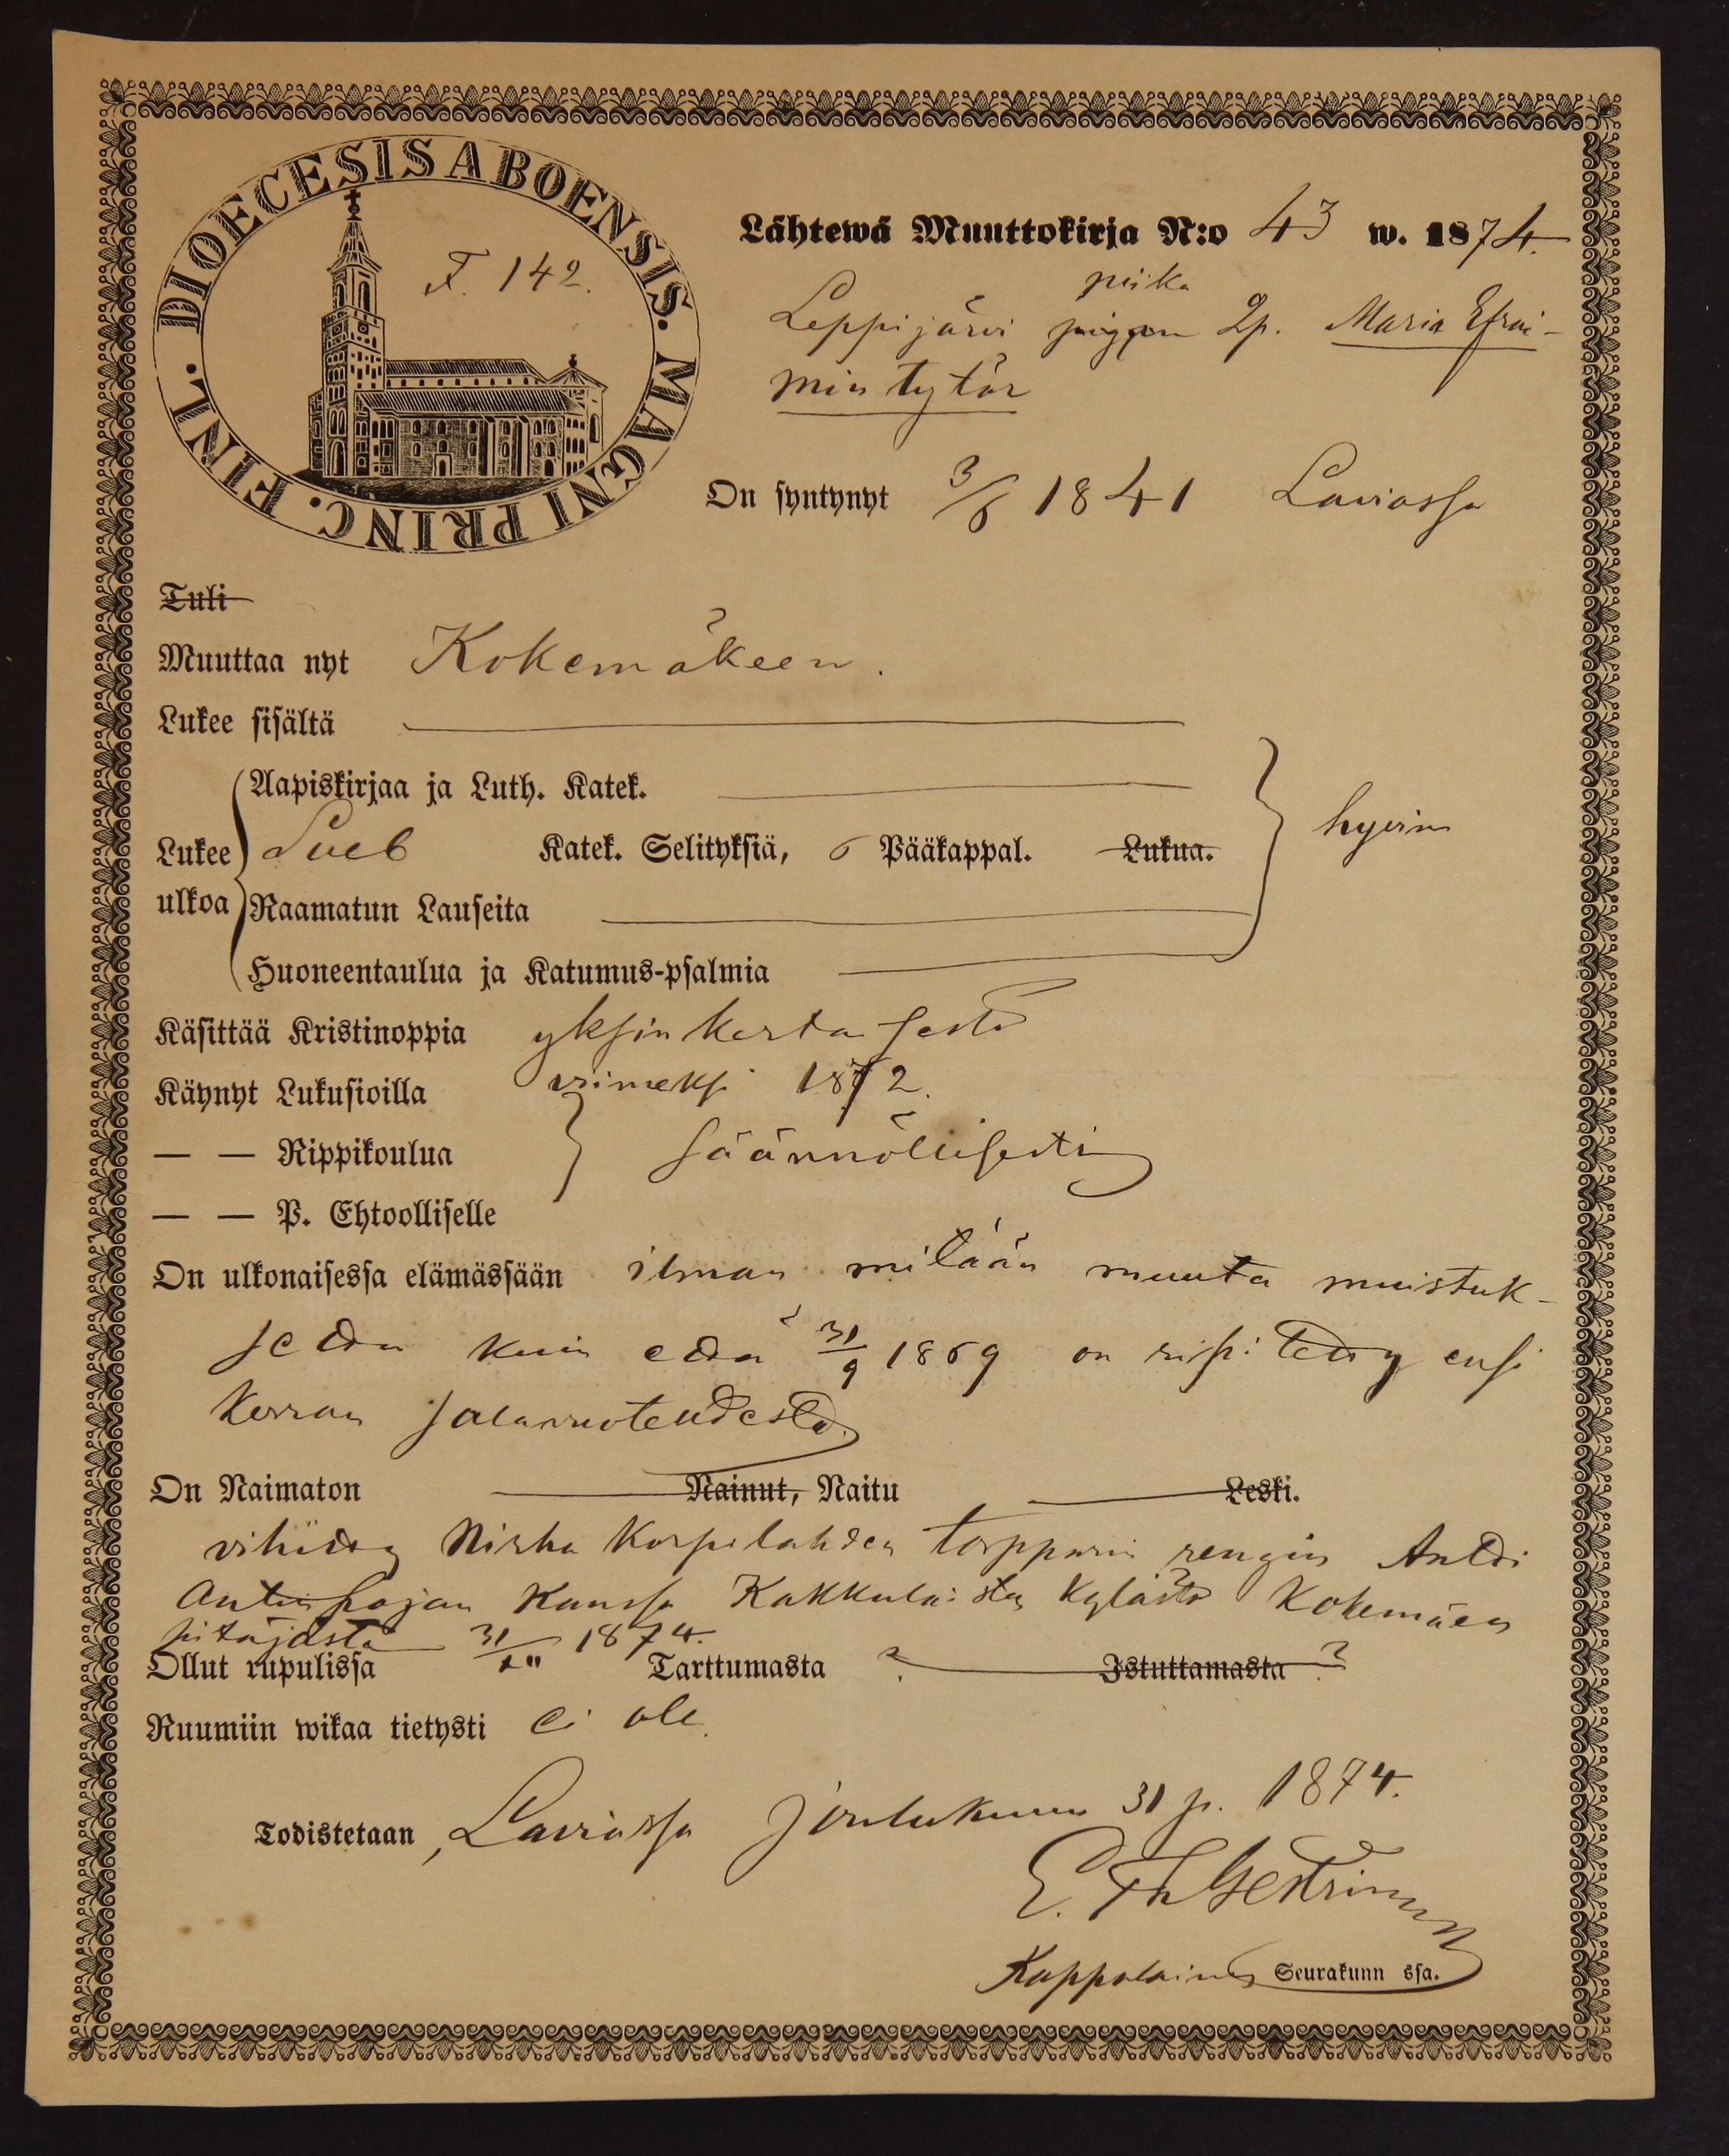 DIOECESIS ABOENSIS. MAGNI PRINC. FINL.
F. 142.
Lähtewä Muuttokirja N:o 43 w. 1874.
piika
Leppijärvi Lp. Maria Efrai-
min tytär
On syntynyt 3/6 1841 Laviassa
Tuli
Muuttaa nyt Kokemäkeen.
Lukee sisältä
Aapiskirjaa ja Luth. Katek.
Lukee ulkoa Sveb Katek. Selityksiä, 6 Pääkappal. Lukua. hyvin
Raamatun Lauseita
Huoneentaulua ja Katumus-psalmia
Käsittää Kristinoppia yksinkertasesti
Käynyt Lukusioilla viimeksi 1872.
— — Rippikoulua säännöllisesti
— — P. Ehtoolliselle
On ulkonaisessa elämässään ilman mitään muuta muistuk-
setta kuin että 31/9 1869 on ripitetty ensi
kerran salavuoteudesta
On Naimaton Nainut, Naitu Leski.
vihitty Korpilahden torpparin rengin Antti
Antinpojan kanssa Kakkulaisten kylästä Kokemäen
pitäjästä 31/ 1874.
Ollut rupulissa Tarttumasta ? Istuttamasta ?
Ruumiin wikaa tietysti ei ole.
Todistetaan, Laviassa joulukuun 31 p. 1874.
E. Th Gestrin
Kappalainen Seurakunn ssa.